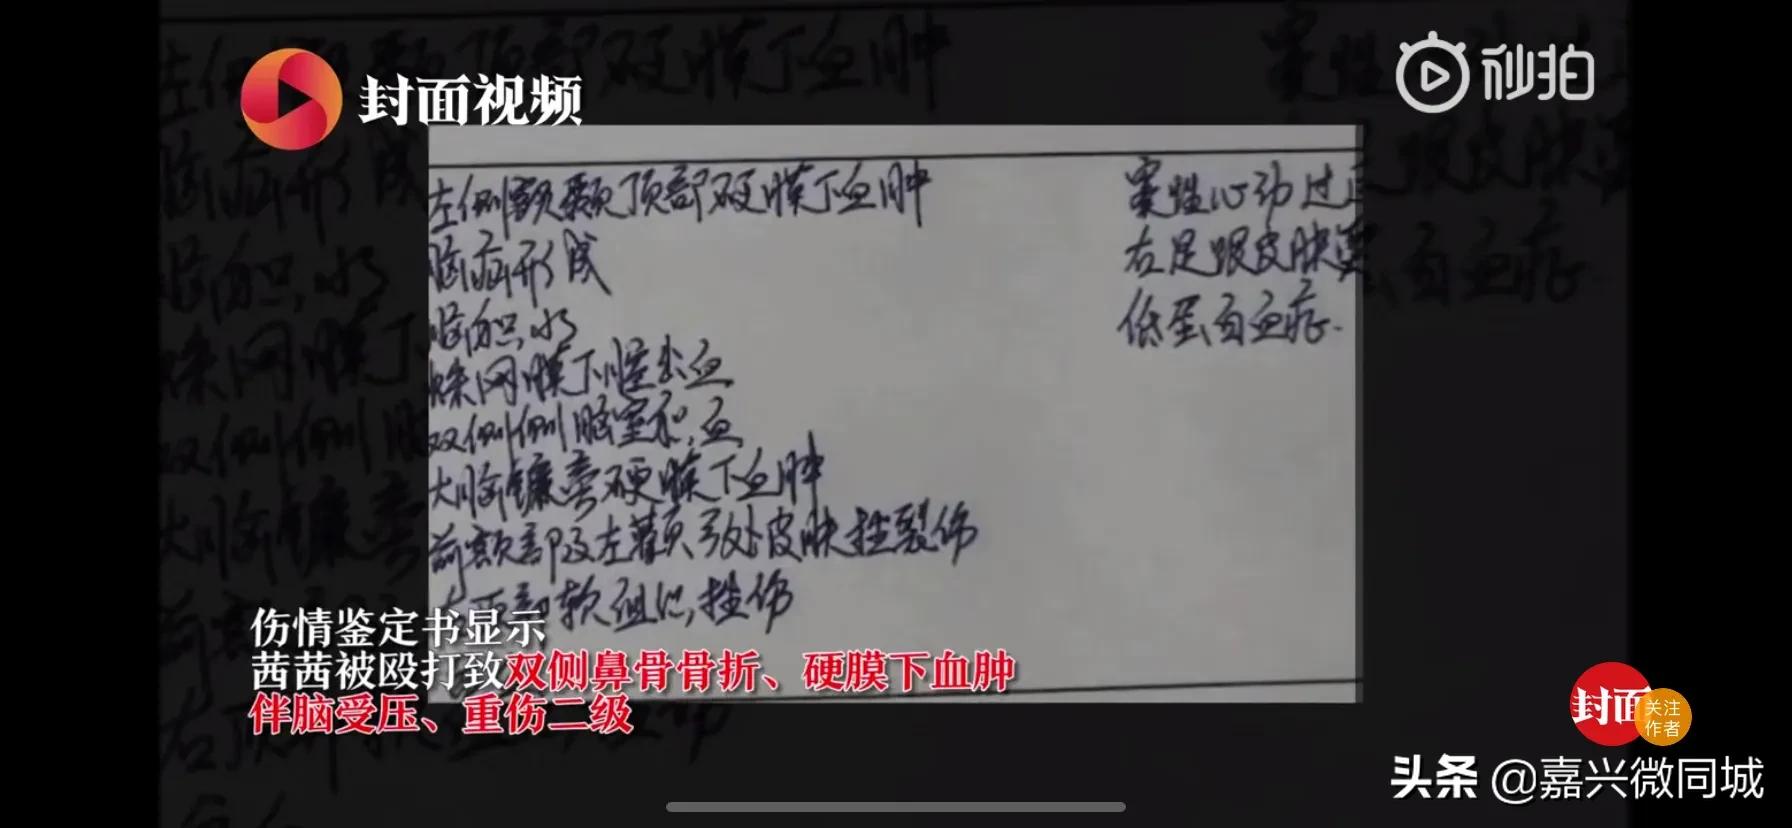 封面视频
秒拍
左侧额颞顶部硬膜下血肿
脑疝形成
脑积水
蛛网膜下腔出血
双侧侧脑室积血
大脑镰旁硬膜下血肿
前额部及左颧弓处皮肤挫裂伤
部软组织挫伤
窦性心动过
右足跟皮肤
低蛋白血症.
伤情鉴定书显示
茜茜被殴打致双侧鼻骨骨折、硬膜下血肿
伴脑受压、重伤二级
封面
关注
作者
头条 @嘉兴微同城